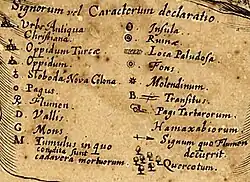 Signorum vel Caracterum declaratio
Urbs Antiqua
Christiana
Oppidum Turcæ
Oppidum
Sloboda Nova Colonia
Pagus
R. Flumen
D. Vallis
G Mons
M Tumulus in quo
condita sunt
cadavera mortuorum
Insula
Ruinæ
Loca Paludosa
Fons
Molendinum
B Transitus
Pagi Tartarorum
Hamaxabiorum
Signum quo Flumen
decurrit
Quercetum.